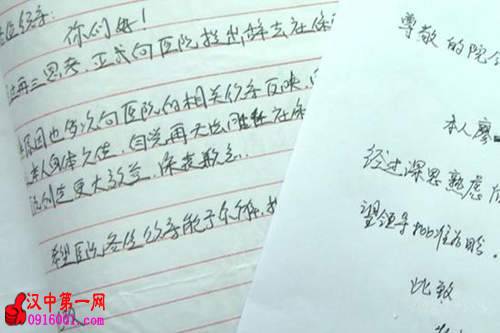 你们好！
再三思考，正式向医院提出辞去在保
因也多次向医院的相关领导反映，
本人身体欠佳，自觉再无法胜任在保
创造更大效益，深表歉意。
望医院各位领导能予
尊敬的院
本人廖
经过深思熟虑后
望领导批准为盼。
此致
汉中第一网
0916001.com